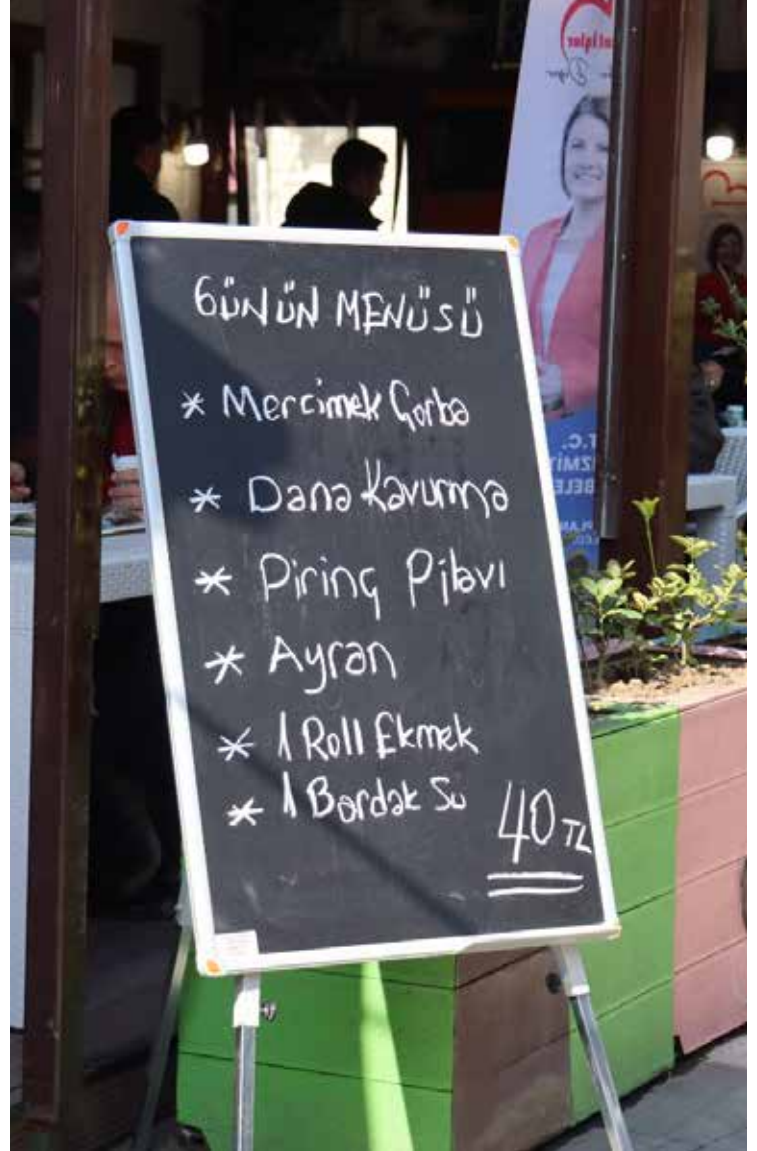 GÜNÜN MENÜSÜ
* Mercimek Çorba
* Dana Kavurma
* Pirinç Pilavı
* Ayran
* 1 Roll Ekmek
* 1 Bardak Su
40 TL
T.C.